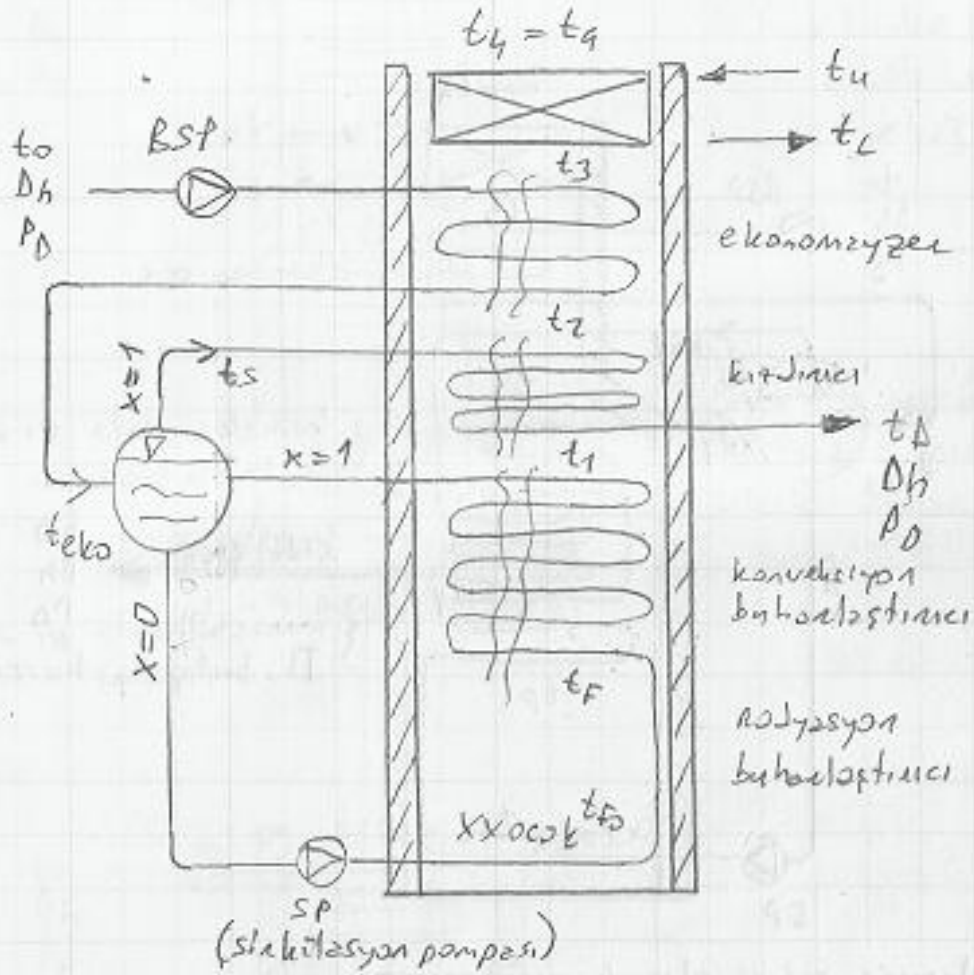 t4 = ta
tu
tL
to
Dh
PD
BSP
t3
ekonomyzer
t2
x=1
ts
kızdırıcı
tD
Dh
PD
x=1
t1
teko
konveksiyon
buharlaştırıcı
x=0
tF
radyasyon
buharlaştırıcı
xxocak tFo
SP
(sirkülasyon pompası)